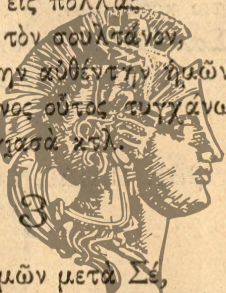 εἰς πολλὰς
τὸν σουλτάνον,
ην αὐθέντην ἡμῶν
νος οὗτος τυγχάνω
κτλ.
3
μῶν μετὰ Σέ,